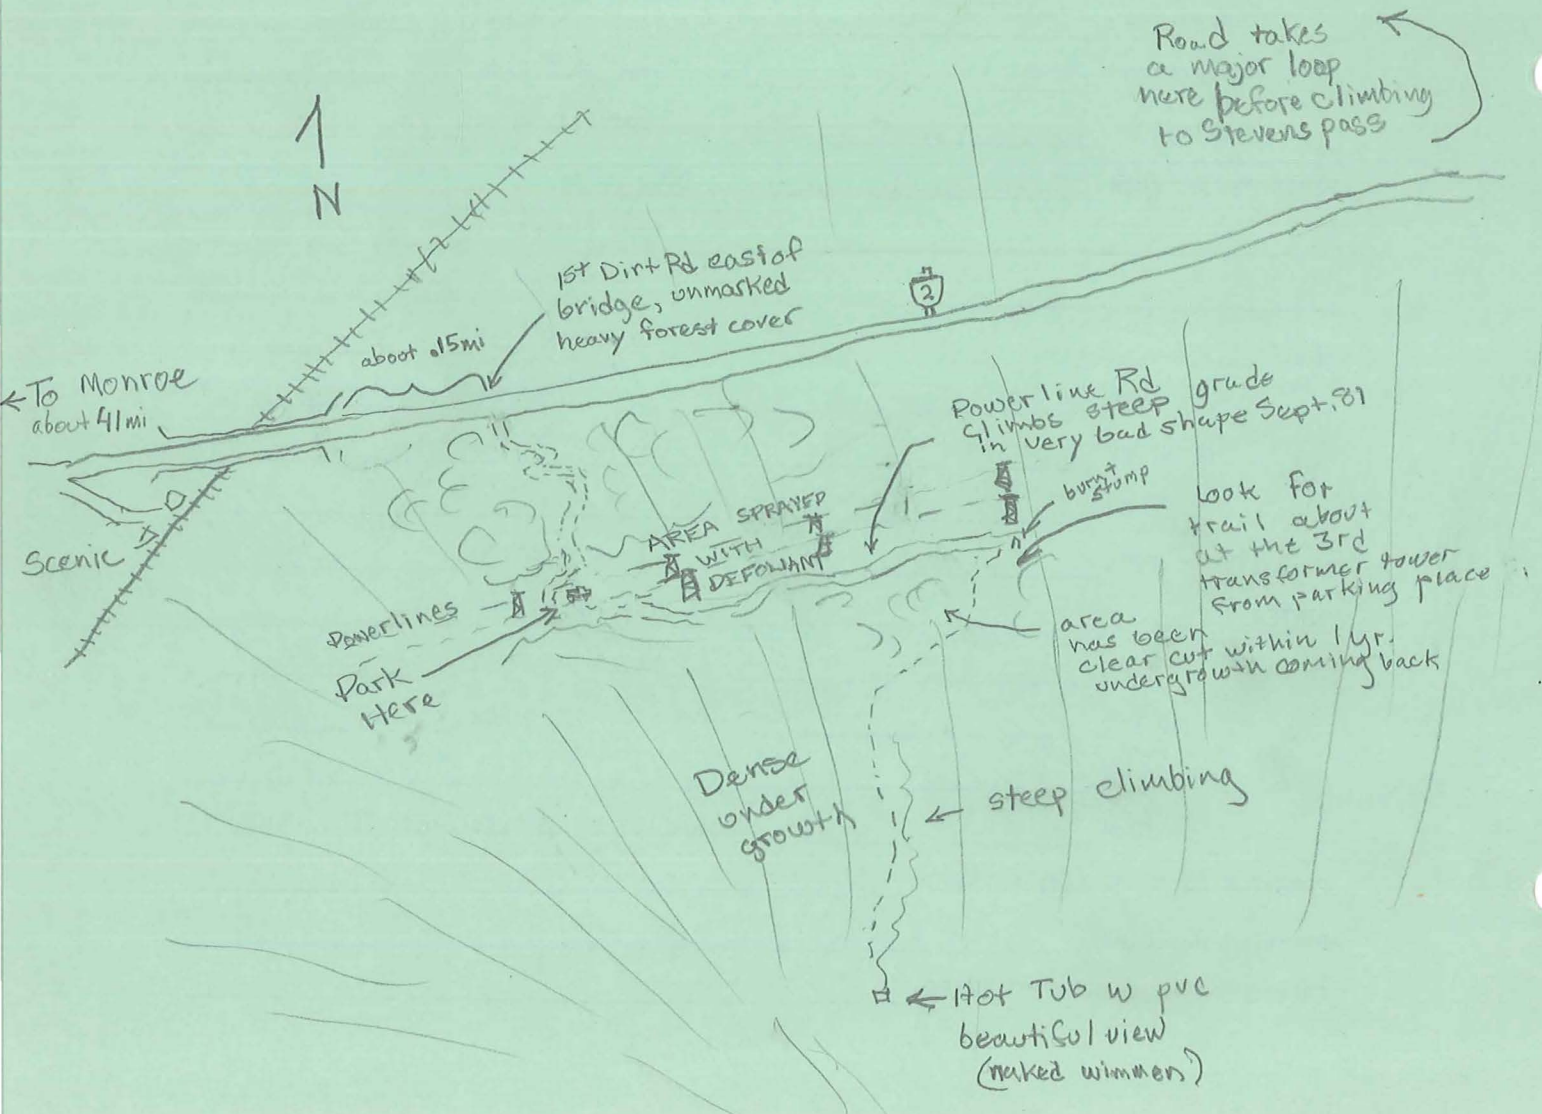 Road takes
a major loop
here before climbing
to Stevens pass
N
1st Dirt Rd east of
bridge, unmarked
heavy forest cover
2
about .15mi
To Monroe
about 41mi
Powerline Rd grade
climbs steep
in very bad shape Sept. 81
burnt
stump
Look for
trail about
at the 3rd
transformer tower
from parking place
AREA SPRAYED
WITH
DEFOLIANT
Scenic
Powerlines
Park
Here
area
has been
clear cut within 1 yr.
undergrowth coming back
Dense
under
growth
steep climbing
Hot Tub w pvc
beautiful view
(naked wimmen)